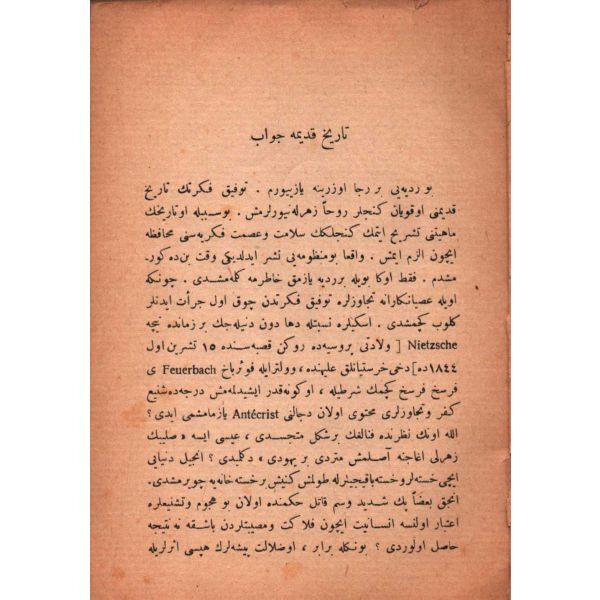 تاریخ قدیمه جواب
بو ردیه‌یی بر رجا اوزرینه یازییورم . توفیق فکرتك تاریخ
قدیمنی اوقویان کنجلر روحاً زهرله‌نیورلرمش . بو سببله او تاریخك
ماهیتنی تشریح ایتمك کنجلکك سلامت و عصمت فکریه‌سنی محافظه
ایچون الزم ایمش . واقعا بو منظومه‌یی نشر ایدلدیکی وقت بن ده کور-
مشدم . فقط اوکا بویله بر ردیه یازمق خاطرمه کلمه‌مشدی . چونکه
اویله عصیانکارانه تجاوزلره توفیق فکرتدن چوق اول جرأت ایدنلر
کلوب کچمشدی . اسکیلره نسبتله دها دون دنیله‌جك بر زمانده نیچه
Nietzsche [ ولادتی پروسیه‌ده روکن قصبه‌سنده ١٥ تشرین اول
١٨٤٤ده] دخی خرستیانلق علیهنده ، وولترایله فوئرباخ Feuerbach ی
فرسخ فرسخ کچمك شرطیله ، او کونه‌قدر ایشیدلمه‌مش درجه‌ده شنیع
کفر و تجاوزلری محتوی اولان دجالنی Antécrist یازمامشمی ایدی ؟
الله اونك نظرنده فنالغك بر شکل متجسدی ، عیسی ایسه « صلیبك
زهرلی اغاجنه آصلمش متردی بر یهودی » دکلمیدی ؟ انجیل دنیایی
ایچی خسته‌لر و خسته باقیجیلرله طولمش کنیش بر خسته‌خانه‌یه چویرمشدی.
انجق بعضاً پك شدید وسم قاتل حکمنده اولان بو هجوم و تشنیعلره
اعتبار اولنسه انسانیت ایچون فلاکت و مصیبتلردن باشقه نه نتیجه
حاصل اولوردی ؟ بونکله برابر ، اوضلالت پیشه‌لرك هپسی اثرلریله